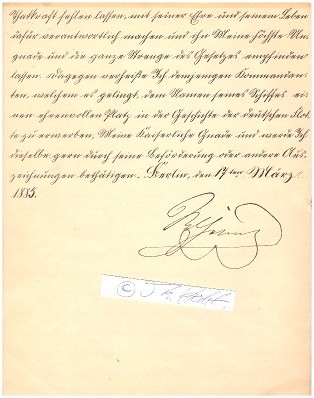 Thatkraft fehlen lassen, mit seiner Ehre und seinem Leben
dafür verantwortlich machen und ihn Meine höchste Un-
gnade und die ganze Strenge des Gesetzes empfinden
lassen. Dagegen verheiße Ich demjenigen Kommandan-
ten, welchem es gelingt, dem Namen seines Schiffes ei-
nen ehrenvollen Platz in der Geschichte der deutschen Flot-
te zu erwerben, Meine Kaiserliche Gnade und werde Ich
dieselbe gern durch seine Beförderung oder andere Aus-
zeichnungen bethätigen. Berlin, den 17ten März
1885.
Wilhelm
©